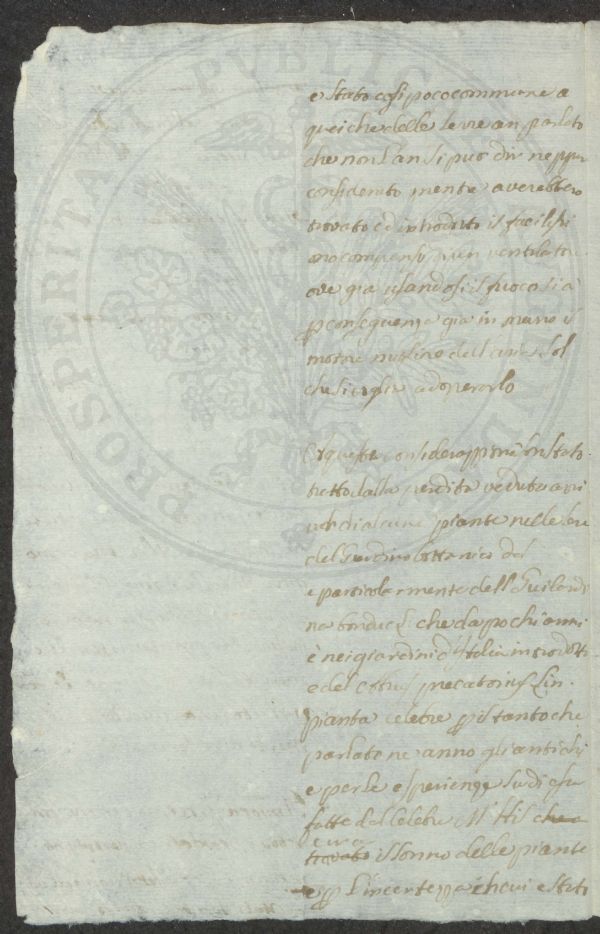 è stato così poco commune a
quei che delle serre an parlato
che non l'an si può dir neppur
considerato mentre averebbero
trovato ed introdotto il facilissi
mo compenso d'un ventilatore
ove già usandosi il fuoco si à
p conseguenza già in mano il
motore massimo dell'aria sol
che si voglia adoperarlo
A queste considerazioni son stato
tratto dalla perdita veduta arri
varsi di alcune piante nelle
del Giardino bottanico del
e particolarmente dell Guilandi
na bonduc L. che da pochi anni
è nei giardini d'Italia introdotta
e del Abrus precatorius Lin.
pianta celebre p il tanto che
parlato ne anno gli antichi
e per le esperienze su di essa
fatte dal celebre Mr Hil che a
circa
trovato il sonno delle piante
e p l'incertezza che vi è stata
PROSPERITATI PUBLIC